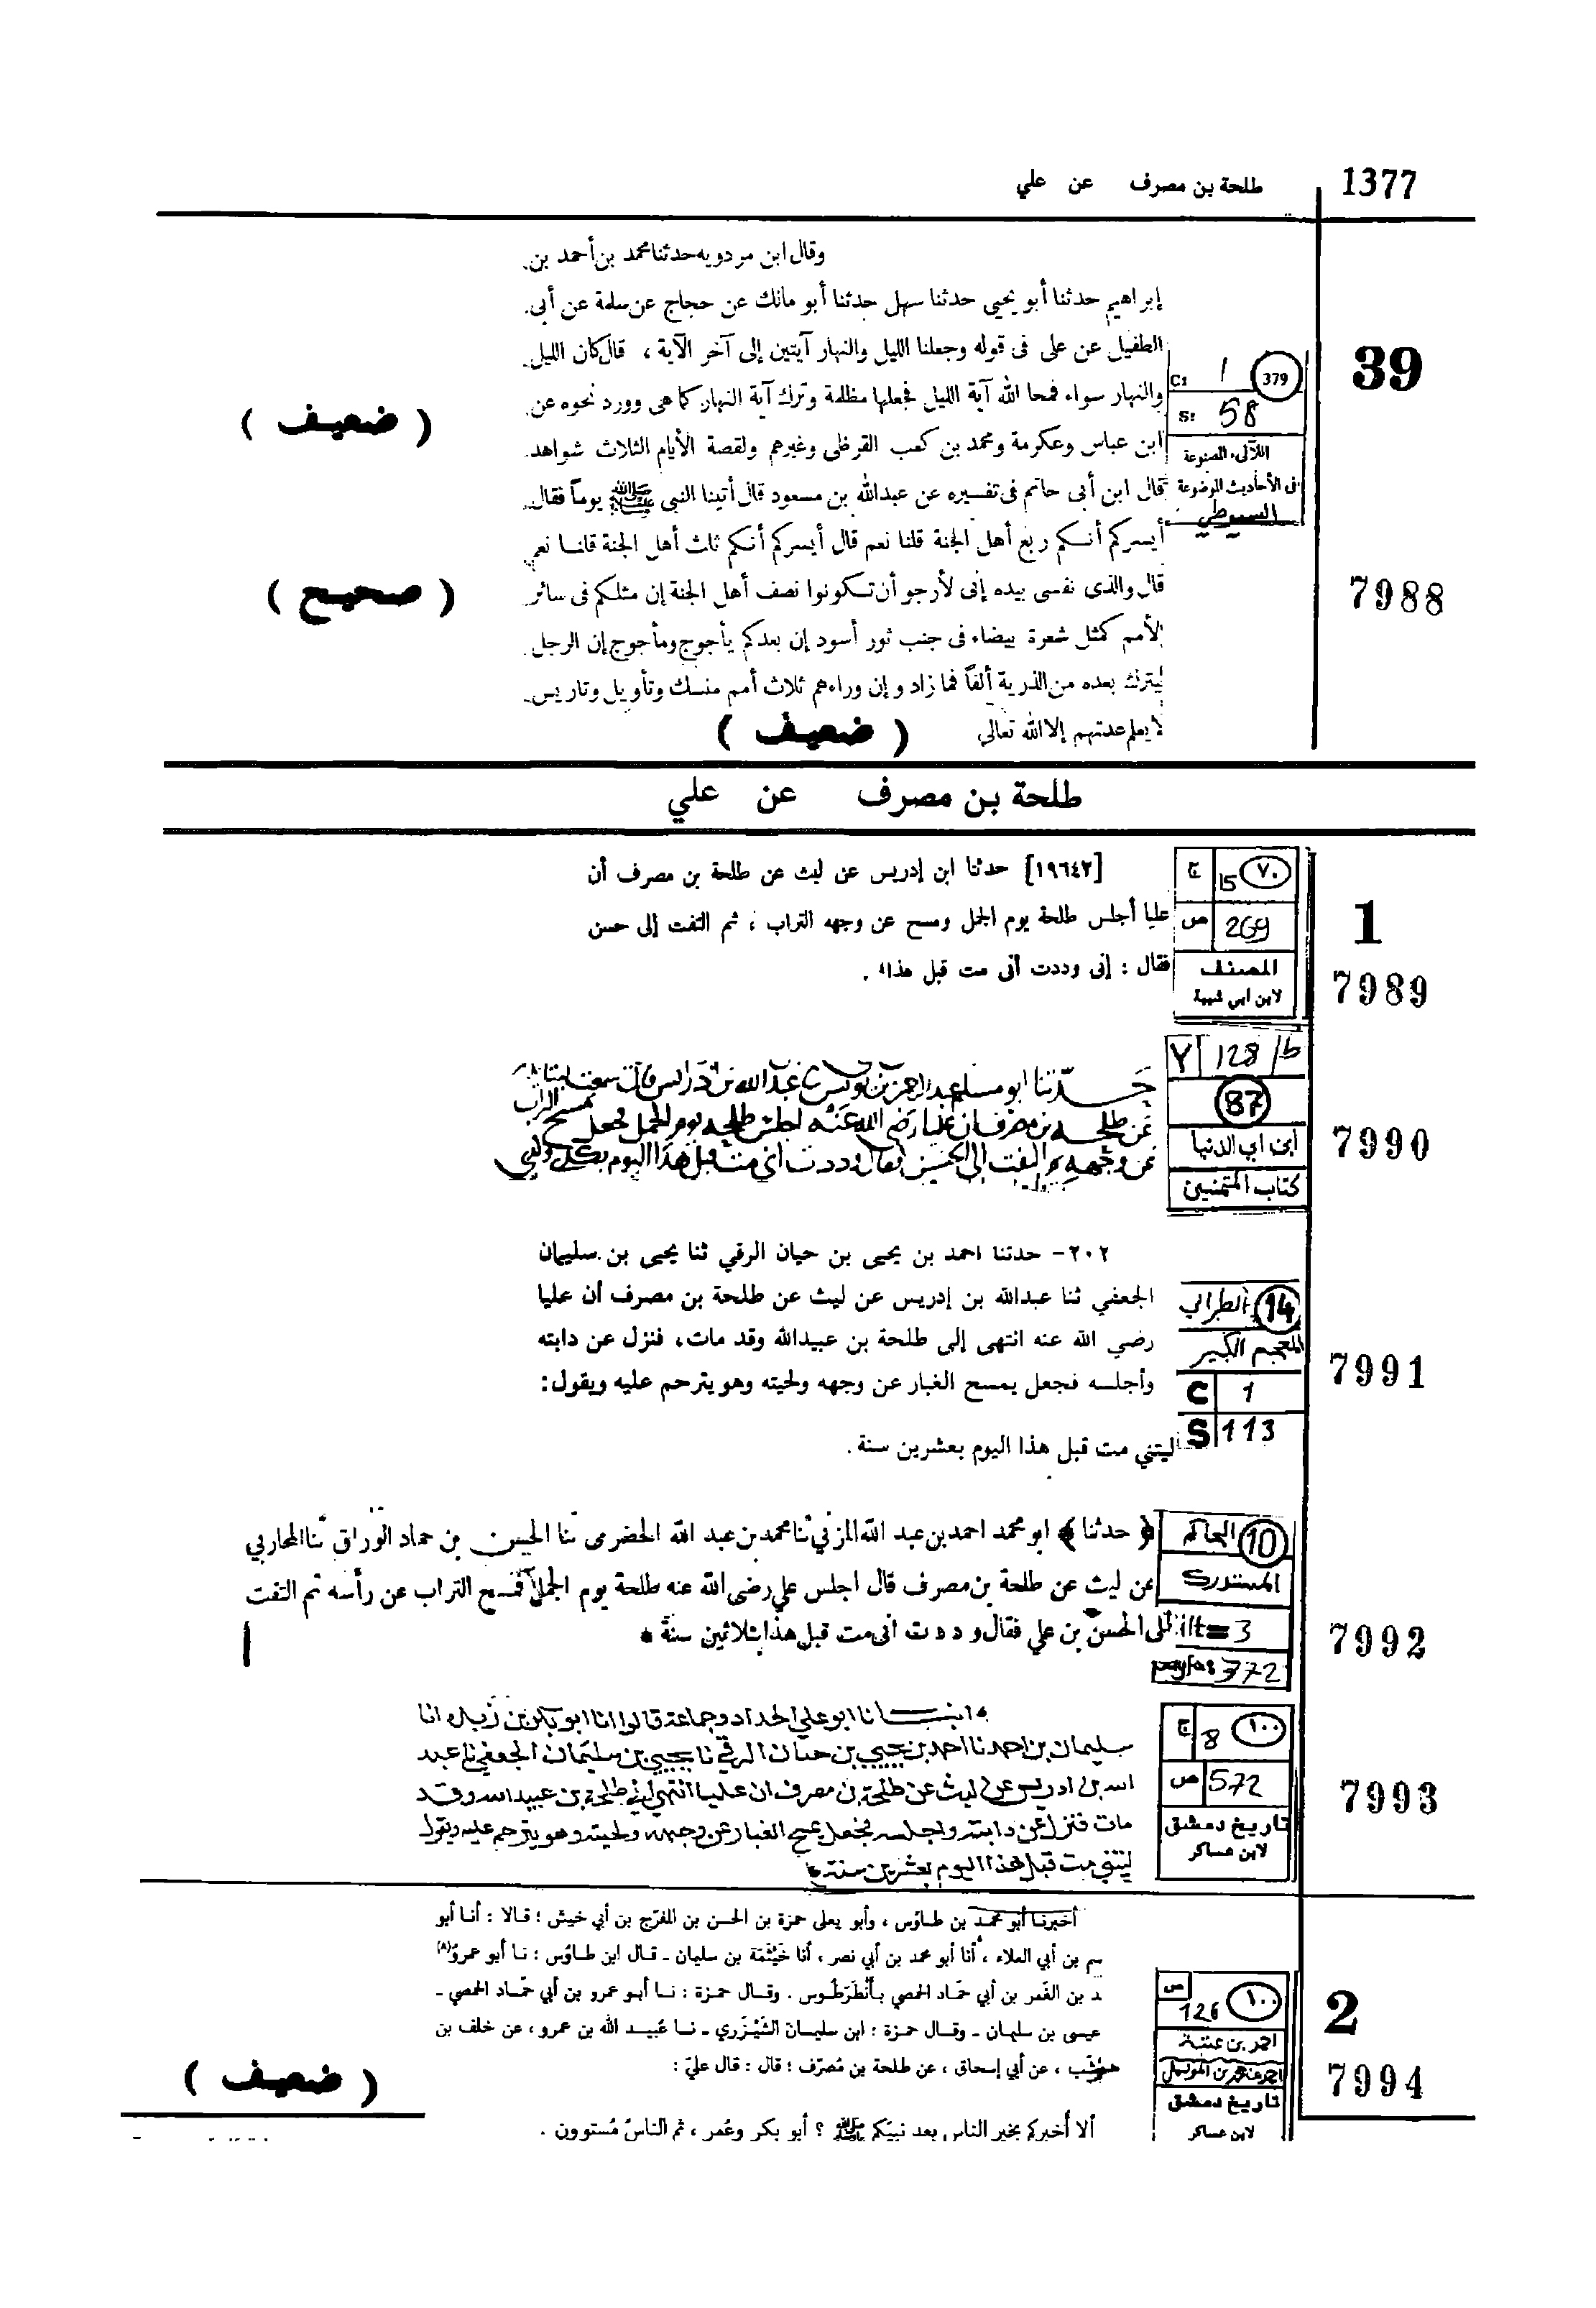 1377
طلحة بن مصرف عن علي
وقال ابن مردويه حدثنا محمد بن أحمد بن
إبراهيم حدثنا أبو يحيى حدثنا سهل حدثنا أبو مالك عن حجاج عن سلمة عن أبى
الطفيل عن على فى قوله وجعلنا الليل والنهار آيتين إلى آخر الآية ، قال كان الليل
والنهار سواء فمحا الله آية الليل فجعلها مظلمة وترك آية النهار كما هى وورد نحوه عن
ابن عباس وعكرمة ومحمد بن كعب القرظى وغيرهم ولقصة الأيام الثلاث شواهد
قال ابن أبى حاتم فى تفسيره عن عبدالله بن مسعود قال أتينا النبى ﷺ يوماً فقال
أيسركم أنكم ربع أهل الجنة قلنا نعم قال أيسركم أنكم ثلث أهل الجنة قلنا نعم
قال والذى نفسى بيده إنى لأرجو أن تكونوا نصف أهل الجنة إن مثلكم فى سائر
الأمم كمثل شعرة بيضاء فى جنب ثور أسود إن بعدكم يأجوج ومأجوج إن الرجل
ليترك بعده من الذرية ألفاً فما زاد وإن وراءهم ثلاث أمم منسك وتأويل وتاريس
لا يعلم عدتهم إلا الله تعالى ( ضعيف )
39
379
C: 1
S: 58
اللآلىء المصنوعة
فى الأحاديث الموضوعة
السيوطي
7988
( ضعيف )
( صحيح )
طلحة بن مصرف عن علي
[١٩٦٤٢] حدثنا ابن إدريس عن ليث عن طلحة بن مصرف أن
عليا أجلس طلحة يوم الجمل ومسح عن وجهه التراب ، ثم التفت إلى حسن
فقال : إنى وددت أنى مت قبل هذا .
٧٠ 15 ج
269 ص
المصنف
لابن ابي شيبة
1
7989
حدثنا ابو مسلم عبد الرحمن بن يونس ثنا عبد الله بن ادريس قال سمعت ليثا
عن طلحة بن مصرف ان عليا رضي الله عنه اجلس طلحة يوم الجمل فجعل يمسح التراب
عن وجهه ثم التفت الى الحسن فقال وددت اني مت قبل هذا اليوم
Y 128/b
87
ابن ابي الدنيا
كتاب المتمنين
7990
٢٠٢- حدثنا احمد بن يحيى بن حيان الرقي ثنا يحيى بن سليمان
الجعفي ثنا عبدالله بن إدريس عن ليث عن طلحة بن مصرف أن عليا
رضي الله عنه انتهى إلى طلحة بن عبيدالله وقد مات، فنزل عن دابته
وأجلسه فجعل يمسح الغبار عن وجهه ولحيته وهو يترحم عليه ويقول:
ليتني مت قبل هذا اليوم بعشرين سنة .
14 الطبراني
المعجم الكبير
C 1
S 113
7991
﴿ حدثنا ﴾ ابو محمد احمد بن عبد الله المزني ثنا محمد بن عبد الله الحضرمى ثنا الحسين بن حماد الوراق ثنا المحاربي
عن ليث عن طلحة بن مصرف قال اجلس علي رضى الله عنه طلحة يوم الجمل فمسح التراب عن رأسه ثم التفت
الى الحسن بن علي فقال وددت انى مت قبل هذا بثلاثين سنة *
10 الحاكم
المستدرك
ilt= 3
372
7992
انبانا ابو علي الحداد وجماعة قالوا انا ابو بكر بن ريذه انا
سليمان بن احمد نا احمد بن يحيى بن حيان الرقي نا يحيى بن سليمان الجعفي نا عبد
الله بن ادريس عن ليث عن طلحة بن مصرف ان عليا انتهى الى طلحة بن عبيد الله وقد
مات فنزل عن دابته واجلسه فجعل يمسح الغبار عن وجهه ولحيته وهو يترحم عليه ويقول
ليتني مت قبل هذا اليوم بعشرين سنة
١٠٠ 8 ج
572 ص
تاريخ دمشق
لابن عساكر
7993
أخبرنا أبو محمد بن طاوس ، وأبو يعلى حمزة بن الحسن بن المفرّج بن أبي خيش ؛ قالا : أنا أبو
سم بن أبي العلاء ، أنا أبو محمد بن أبي نصر ، أنا خَيْثَمَة بن سليمان - قال ابن طاوس : نا أبو عمرو(٨)
ـد بن الغَمر بن أبي حمّاد الحمصي بأَنْطَرَطُوس . وقال حمزة : نا أبو عمرو بن أبي حمّاد الحمصي -
عيسى بن سليمان - وقال حمزة : ابن سليمان الشَّيْزَري - نا عُبيد الله بن عمرو ، عن خلف بن
حوشَب ، عن أبي إسحاق ، عن طلحة بن مُصَرّف ؛ قال : قال عليّ :
ألا أُخبركم بخير الناس بعد نبيّكم ﷺ ؟ أبو بكر وعُمر ، ثم الناسُ مُستوون .
١٠٠ ص 126
احمد بن عتبة
تاريخ دمشق
لابن عساكر
2
7994
( ضعيف )